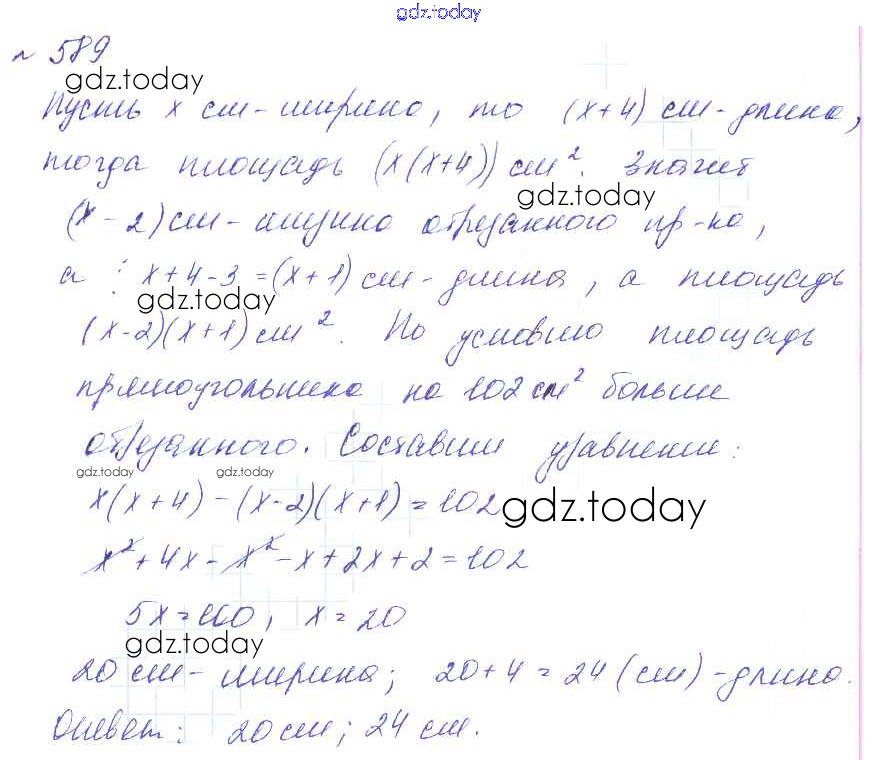 gdz.today
№ 589
gdz.today
Пусть x см - ширина, то (x+4) см - длина,
тогда площадь (x(x+4)) см². Значит
gdz.today
(x-2) см - ширина отрезанного пр-ка,
а x+4-3=(x+1) см - длина, а площадь
gdz.today
(x-2)(x+1) см². По условию площадь
прямоугольника на 102 см² больше
отрезанного. Составим уравнение:
gdz.today gdz.today
x(x+4)-(x-2)(x+1)=102
gdz.today
x²+4x-x²-x+2x+2=102
5x=100, x=20
gdz.today
20 см - ширина; 20+4=24 (см) - длина.
Ответ: 20 см; 24 см.